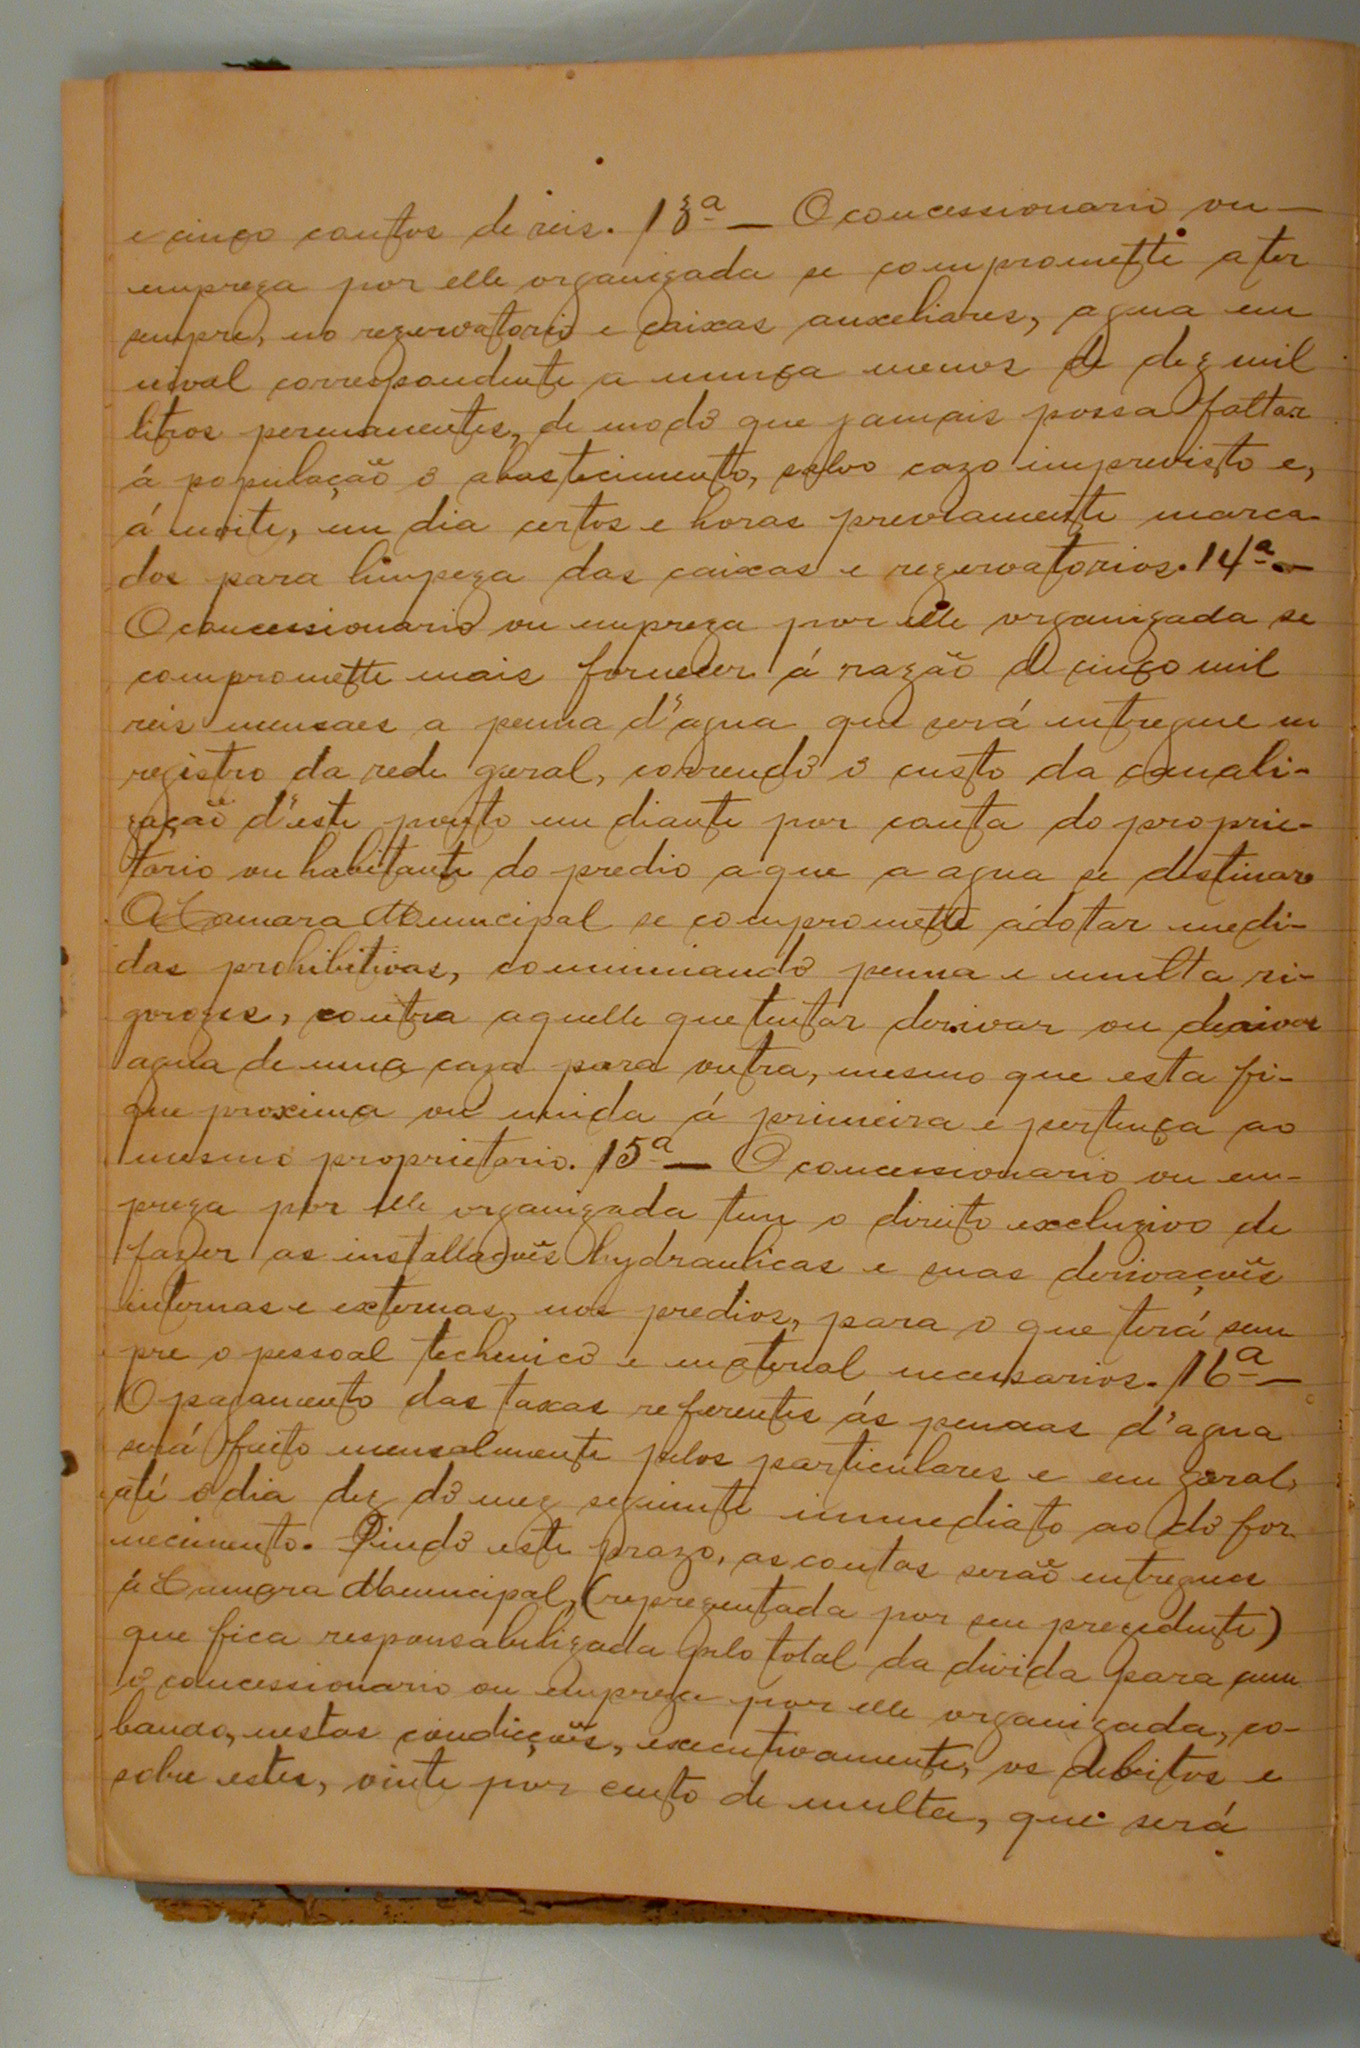 e cinco contos de reis. 13ª — O concessionario ou
empreza por elle organizada se compromette a ter
sempre, no rezervatorio e caixas auxeliares, agua em
nival correspondente a nunca menos de dez mil
litros permanentes, de modo que jamais possa faltar
á população o abastecimento, salvo cazo imprevisto e,
á noite, em dia certos e horas previamente marca-
dos para limpeza das caixas e rezervatorios. 14ª —
O concessionario ou empreza por elle organizada se
compromette mais fornecer á razão de cinco mil
reis mensaes a penna d'agua que será entregue no
registro da rede geral, correndo o custo da canali-
zação d'este ponto em diante por conta do proprie-
tario ou habitante do predio a que a agua se destinar.
A Camara Municipal se compromette adotar medi-
das prohibitivas, comminando penna e multa ri-
gorozes, contra aquelle que tentar derivar ou derivar
agua de uma caza para outra, mesmo que esta fi-
que proxima ou unida á primeira e pertença ao
mesmo proprietario. 15ª — O concessionario ou em-
preza por elle organizada tem o direito excluzivo de
fazer as installações hydraulicas e suas derivações
internas e externas, nos predios, para o que terá sem
pre o pessoal technico e material necessarios. 16ª —
O pagamento das taxas referentes ás pennas d'agua
será feito mensalmente pelos particulares e em geral,
até o dia dez do mez seguinte immediato ao do for
necimento. Findo este prazo, as contas serão entregues
á Camara Municipal, (reprezentada por seu prezidente)
que fica responsabilizada pelo total da divida para com
o concessionario ou empreza por elle organizada, co-
brando, nestas condicções, executivamente, os debitos e
sobre estes, vinte por cento de multa, que será